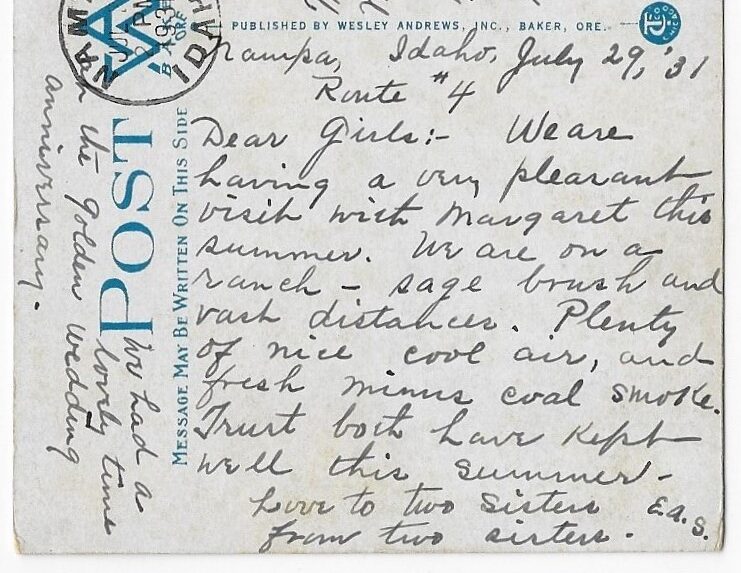 PUBLISHED BY WESLEY ANDREWS, INC., BAKER, ORE.
Nampa, Idaho, July 29, '31
Route #4
Dear Girls:- We are
having a very pleasant
visit with Margaret this
summer. We are on a
ranch - sage brush and
vast distances. Plenty
of nice cool air, and
fresh minus coal smoke.
Trust both have kept
well this summer-
Love to two sisters E.A.S.
from two sisters.
We had a
lovely time
on the golden wedding
anniversary.
POST
MESSAGE MAY BE WRITTEN ON THIS SIDE
NAM
IDAH